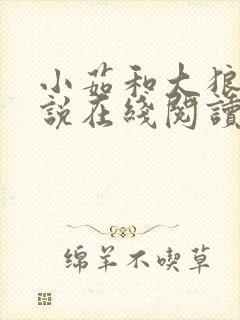 小茹和大狼
說在綫閱讀
绵羊不喫草